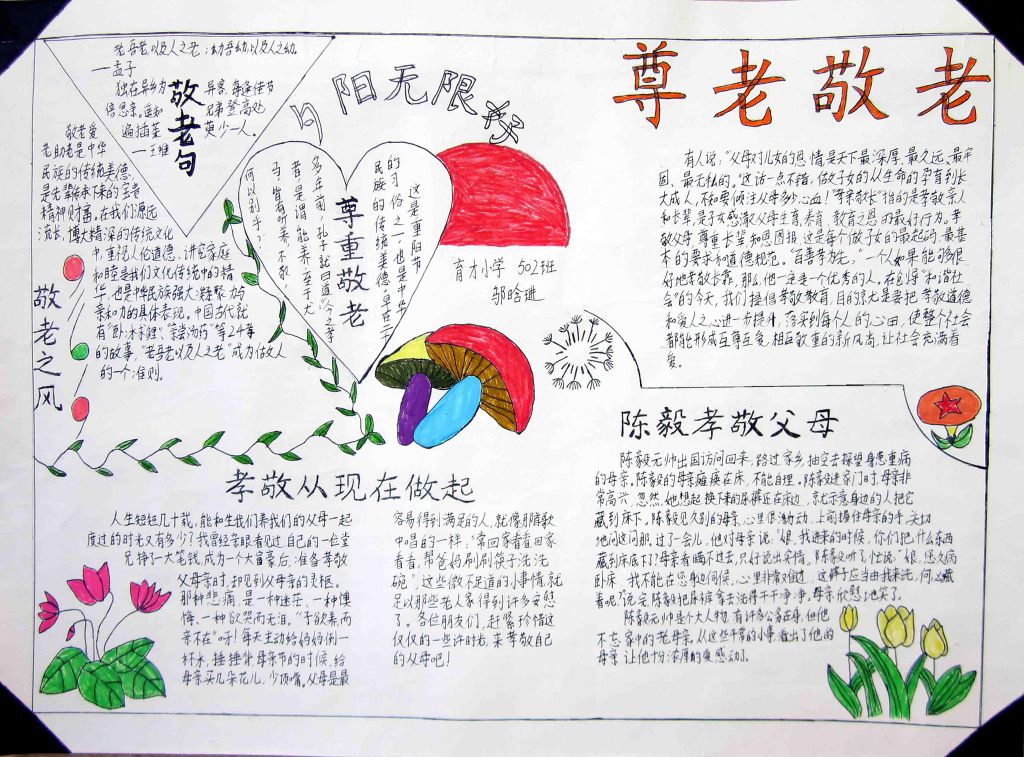 老吾老以及人之老，幼吾幼以及人之幼
—孟子
独在异乡为异客，每逢佳节
倍思亲。遥知兄弟登高处
遍插茱
少一人。
—王维
敬老句
敬老爱
老助老是中华
民族的传统美德，
是先辈传承下来的宝贵
精神财富。在我们源远
流长，博大精深的传统文化
中，重视人伦道德、讲究家庭
和睦是我们文化传统中的精
华，也是中华民族强大凝聚力与
亲和力的具体表现。中国古代就
有“卧冰求鲤”、“亲尝汤药”等24个字
的故事，“老吾老以及人之老”成为做人
的一个准则。
敬老之风
夕阳无限好
尊重敬老
这是重阳节
的习俗之一，也是中华
民族的传统美德，早在二千
多年前，孔子就曰：“今之孝
者，是谓能养，至于犬
马，皆有所养，不敬，
何以别乎？”
育才小学 502班
邬晗进
尊老敬老
有人说：“父母对儿女的恩情是天下最深厚、最久远、最牢
固、最无私的。”这话一点不错，做子女的从生命的孕育到长
大成人，不知要倾注父母多少心血！“孝亲敬长”指的是孝敬亲人
和长辈，是子女感激父母生育、养育、教育之恩的最好行为。孝
敬父母，尊重长辈和恩图报，这是每个做子女的最起码、最基
本的要求和道德规范。“百善孝为先”，一个人如果能够很
好地孝敬长辈，那么，他一定是一个优秀的人。在倡导“和谐社
会”的今天，我们提倡孝敬教育，目的就是要把孝敬道德
和爱人之心进一步提升，落实到每个人的心田，使整个社会
都能形成互尊互爱，相互敬重的新风尚，让社会充满着
爱。
陈毅孝敬父母
陈毅元帅出国访问回来，路过家乡，抽空去探望身患重病
的母亲。陈毅的母亲瘫痪在床，不能自理。陈毅进家门时，母亲非
常高兴，忽然，她想起换下来的尿裤还在床边，就示意身边的人把它
藏到床下，陈毅见久别的母亲，心里很激动，上前握住母亲的手，关切
地问这问那，过了一会儿，他对母亲说，“娘，我进来的时候，你们把什么东西
藏到床底下了？”母亲看瞒不过去，只好说出实情。陈毅听了，忙说：“娘，您久病
卧床，我不能在您身边伺候，心里非常难过，这裤子应当由我来洗，何必藏
着呢？”说完，陈毅把尿裤拿去洗得干干净净，母亲欣慰地笑了。
陈毅元帅是个大人物，有许多公务在身，但他
不忘家中的老母亲，从这些平常的小事，看出了他的
母亲，让他十分浓厚的爱感动了。
孝敬从现在做起
人生短短几十载，能和生我们养我们的父母一起
度过的时光又有多少？我曾经亲眼看见过自己的一位堂
兄挣了一大笔钱，成为一个大富豪后，准备孝敬
父母亲时，却见到父母亲的灵柩。
那种悲痛，是一种迷茫、一种懊
悔、一种欲哭而无泪，“子欲养而
亲不在”呀！每天主动给妈妈倒一
杯水，捶捶背，母亲节的时候，给
母亲买几朵花儿，少顶嘴。父母是最
容易得到满足的人，就像那首歌
中唱的一样，“常回家看看回家
看看，帮爸妈刷刷筷子洗洗
碗”，这些微不足道的小事情，就
足以那些老人家得到许多安慰
了。各位朋友们，赶紧珍惜这
仅仅的一些许时光，来孝敬自己
的父母吧！